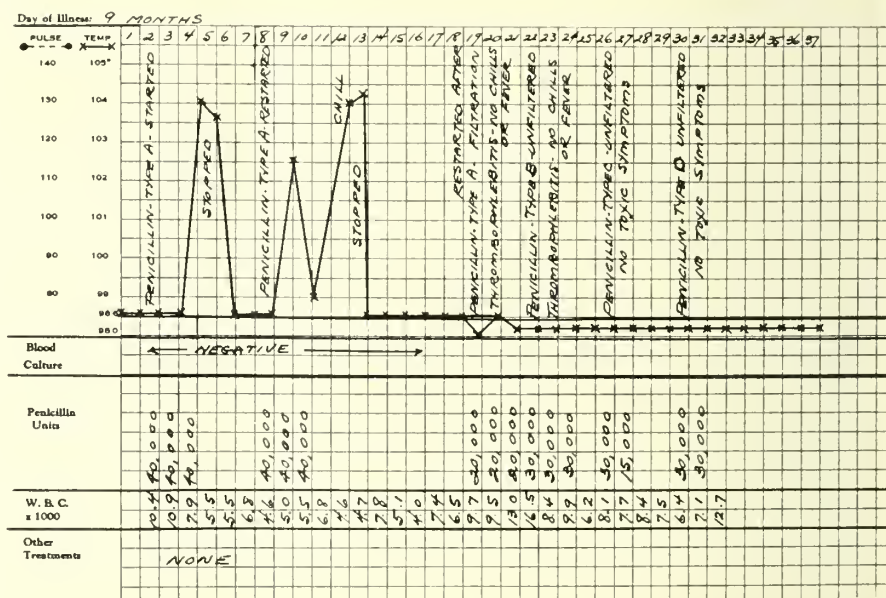 Day of Illness: 9 MONTHS
PULSE TEMP 1 2 3 4 5 6 7 8 9 10 11 12 13 14 15 16 17 18 19 20 21 22 23 24 25 26 27 28 29 30 31 32 33 34 35 36 37
140 105°
130 104
120 103
110 102
100 101
90 100
80 99
98.6
98.0
PENICILLIN-TYPE A-STARTED
STOPPED
PENICILLIN-TYPE A-RESTARTED
CHILL
STOPPED
RESTARTED AFTER
PENICILLIN-TYPE A- FILTRATION
THROMBOPHLEBITIS-NO CHILLS
OR FEVER
PENICILLIN-TYPE B-UNFILTERED
THROMBOPHLEBITIS- NO CHILLS
OR FEVER
PENICILLIN-TYPE C-UNFILTERED
NO TOXIC SYMPTOMS
PENICILLIN-TYPE D UNFILTERED
NO TOXIC SYMPTOMS
Blood
Culture
NEGATIVE
Penicillin
Units
40,000
40,000
40,000
40,000
40,000
40,000
20,000
20,000
20,000
30,000
30,000
30,000
30,000
15,000
30,000
30,000
W. B. C.
x 1000
10.4 10.9 7.9 5.5 5.5 6.8 4.6 5.0 5.5 6.8 4.6 4.7 7.8 5.1 4.0 7.4 6.5 9.7 9.5 13.0 16.5 8.4 9.9 6.2 8.1 7.7 8.4 7.5 6.4 7.1 12.7
Other
Treatments
NONE